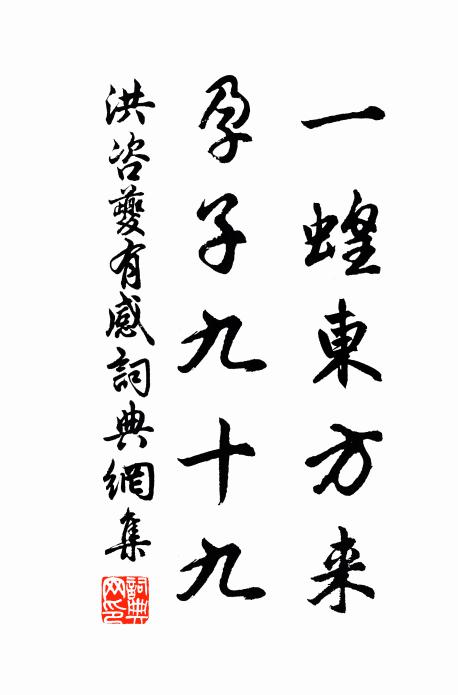 一蝗東方来
孕子九十九
洪咨夔有感詞典網集
詞典网印